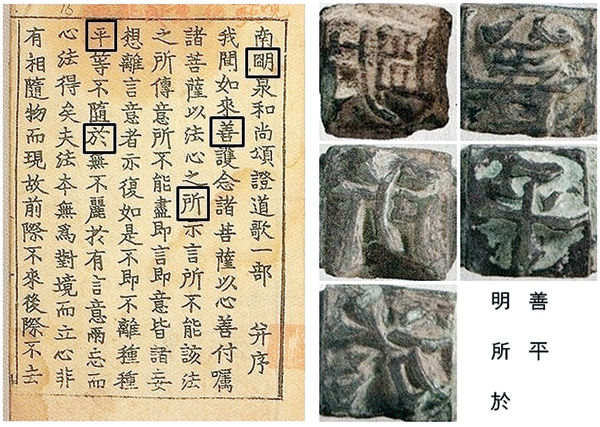 南明泉和尚頌證道歌一部 并序
我聞如來善護念諸菩薩以心善付囑
諸菩薩以法心之所示言所不能該法
之所傳意所不能盡即言即意皆諸妄
想離言意者亦復如是不即不離種種
平等不隨於無不麗於有言意兩忘而
心法得矣夫法本無為對境而立心非
有相隨物而現故前際不來後際不去
明 善
所 平
於